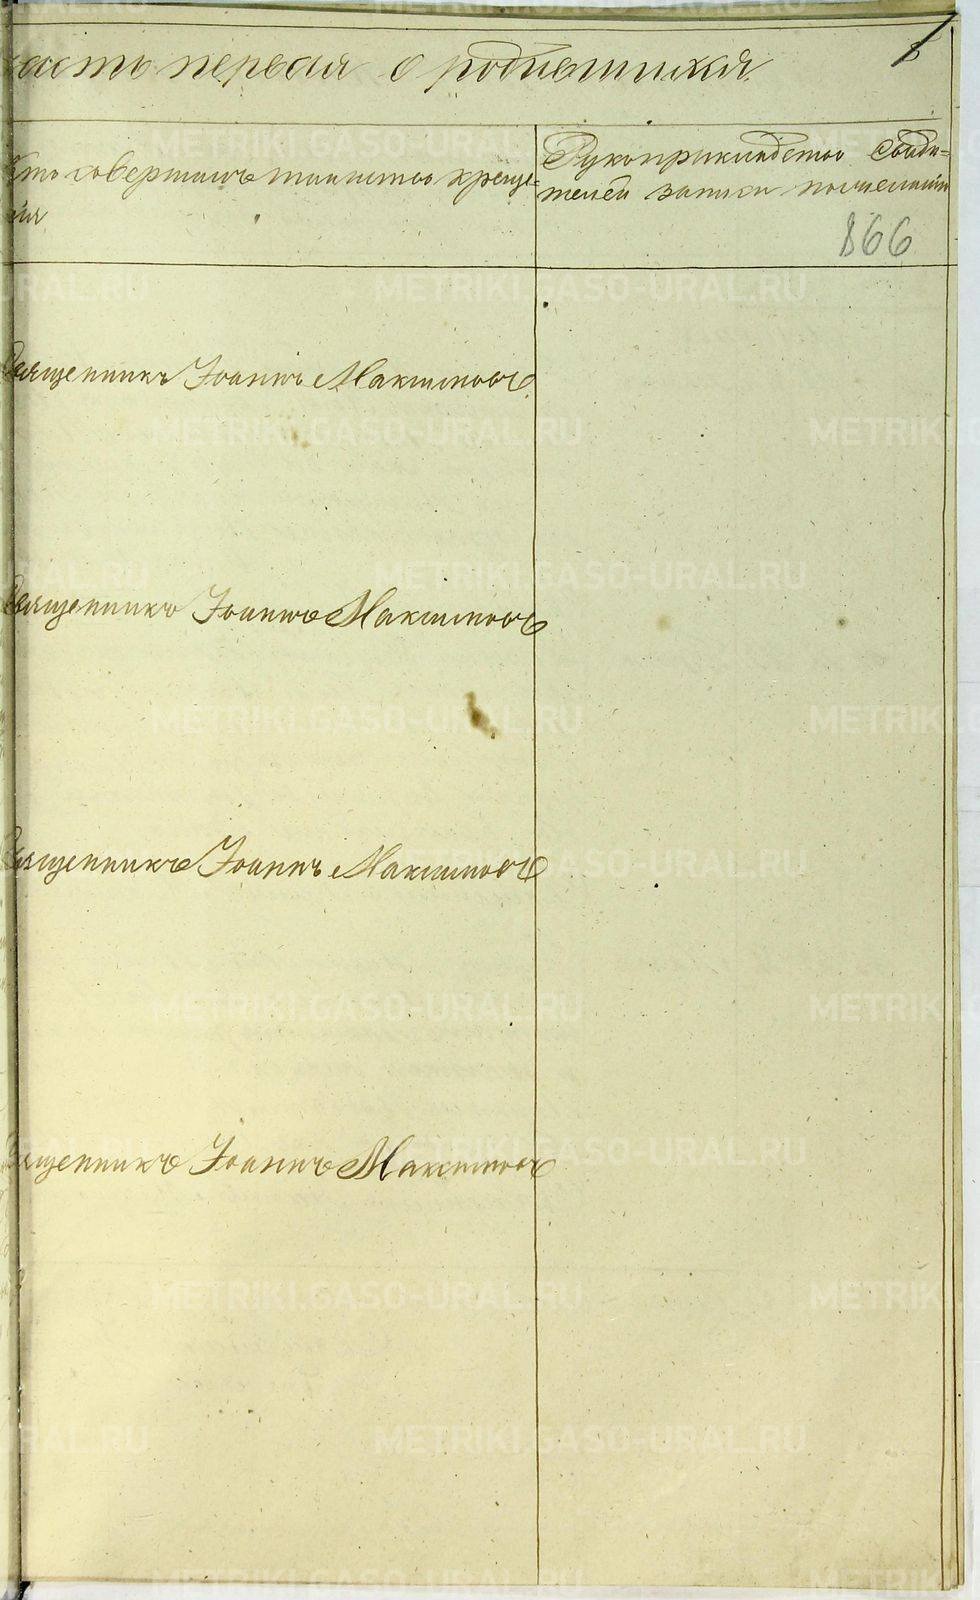 часть первая о родившихся
Кто совершилъ таинство креще-
нія
Рукоприкладство свиде-
телей записи по желанію
866
Священникъ Іоаннъ Максимовъ
Священникъ Іоаннъ Максимовъ
Священникъ Іоаннъ Максимовъ
Священникъ Іоаннъ Максимовъ
METRIKI.GASO-URAL.RU